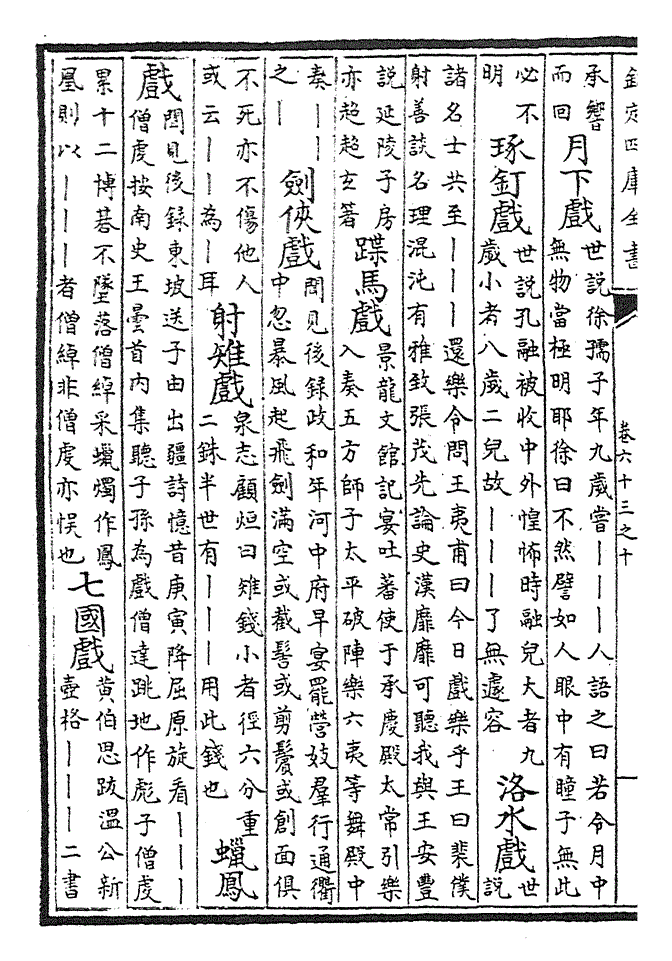 欽定四庫全書
卷六十三之十
承響
而回
月下戲
世說徐孺子年九歲嘗———人語之曰若令月中
無物當極明耶徐曰不然譬如人眼中有瞳子無此
必不
明
琢釘戲
世說孔融被收中外惶怖時融兒大者九
歲小者八歲二兒故———了無遽容
洛水戲
世
說
諸名士共至———還樂令問王夷甫曰今日戲樂乎王曰裴僕
射善談名理混沌有雅致張茂先論史漢靡靡可聽我與王安豐
說延陵子房
亦超超玄著
蹀馬戲
景龍文館記宴吐蕃使于承慶殿太常引樂
入奏五方師子太平破陣樂六夷等舞殿中
奏——
之—
劍俠戲
聞見後録政和年河中府早宴罷營妓羣行通衢
中忽暴風起飛劍滿空或截髻或剪鬢或創面俱
不死亦不傷他人
或云——為—耳
射雉戲
泉志顧烜曰雉錢小者徑六分重
二銖半世有———用此錢也
蠟鳳
戲
聞見後録東坡送子由出疆詩憶昔庚寅降屈原旋看———
僧虔按南史王曇首內集聽子孫為戲僧達跳地作彪子僧虔
累十二博碁不墜落僧綽采蠟燭作鳳
凰則以———者僧綽非僧虔亦悞也
七國戲
黃伯思跋溫公新
壺格———二書